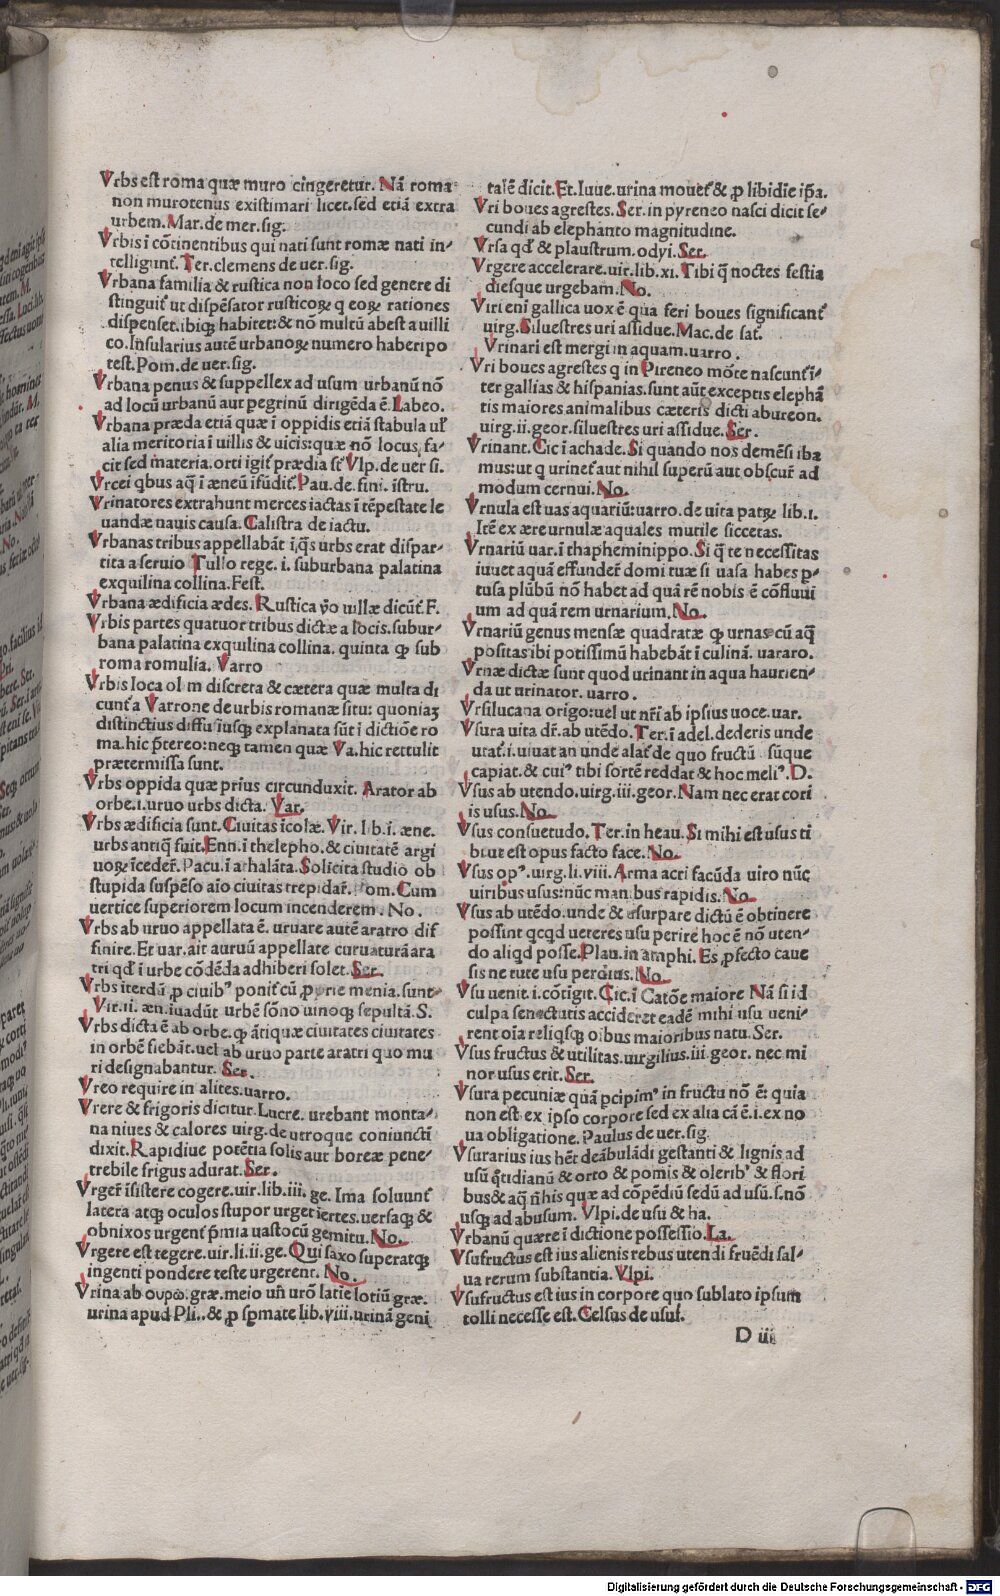 Vrbs est roma quæ muro cingeretur. Nā roma
non murotenus existimari licet. sed etiā extra
urbem. Mar. de mer. sig.
Vrbis ī cōtinentibus qui nati sunt romæ nati in-
telligunt̄. Ter. clemens de uer. sig.
Vrbana familia & rustica non loco sed genere di
stinguit̄ ut dispēsator rusticoꝝ q eoꝝ rationes
dispenset. ibiqꝫ habitet: & nō multū abest a uilli
co. Insularius autē urbanoꝝ numero haberi po
test. Pom. de uer. sig.
Vrbana penus & suppellex ad usum urbanū nō
ad locū urbanū aut pegrinū dirigēda ē. Labeo.
Vrbana præda etiā quæ ī oppidis etiā stabula ul̄
alia meritoria ī uillis & uicis: quæ nō locus, fa-
cit sed materia. orti igit̄ prædia st̄ Vlp. de uer si.
Vrcei qbus aq̄ ī æneū īfūdit̄. Pau. de. fini. īstru.
Vrinatores extrahunt merces iactas ī tēpestate le
uandæ nauis causa. Calistra de iactu.
Vrbanas tribus appellabāt ī, q̄s urbs erat dispar-
tita a seruio Tullo rege. i. suburbana palatina
exquilina collina. Fest.
Vrbana ædificia ædes. Rustica ỹo uillæ dicūt̄. F.
Vrbis partes quatuor tribus dictæ a locis. subur-
bana palatina exquilina collina. quinta ꝙ sub
roma romulia. Varro
Vrbis loca ol m discreta & cætera quæ multa di
cunt̄ a Varrone de urbis romanæ situ: quoniaꝫ
distinctius diffusiusqꝫ explanata sūt ī dictiōe ro
ma. hic p̄tereo: neqꝫ tamen quæ Va. hic rettulit
prætermissa sunt.
Vrbs oppida quæ prius circunduxit. Arator ab
orbe. i. uruo urbs dicta. Var.
Vrbs ædificia sunt. Ciuitas īcolæ. Vir. lib. i. æne.
urbs antiq̄ fuit. Enn. ī thelepho. & ciuitatē argi
uoꝝ īceder̄. Pacu. ī athalāta. Solicita studio ob
stupida suspēso aīo ciuitas trepidar̄. Pom. Cum
uertice superiorem locum incenderem. No.
Vrbs ab uruo appellata ē. uruare autē aratro dif
finire. Et uar. ait auruū appellate curuaturā ara
tri qd̄ ī urbe cōdēda adhiberi solet. Ser.
Vrbs iterdū ꝓ ciuibꝰ ponit̄ cū ꝓprie menia. sunt
Vir. ii. æn. iuadūt urbē sōno uinoqꝫ sepultā. S.
Vrbs dicta ē ab orbe. ꝙ ātiquæ ciuitates ciuitates
in orbē fiebāt. uel ab uruo parte aratri quo mu
ri designabantur. Ser.
Vreo require in alites. uarro.
Vrere & frigoris dicitur. Lucre. urebant monta-
na niues & calores uirg. de utroque coniuncti
dixit. Rapidiue potētia solis aut boreæ pene-
trebile frigus adurat. Ser.
Vrger̄ īsistere cogere. uir. lib. iii. ge. Ima soluunt̄
latera atqꝫ oculos stupor urget iertes. uersaqꝫ &
obnixos urgent̄ p̄mia uasto cū gemitu. No.
Vrgere est tegere. uir. li. ii. ge. Qui saxo superatqꝫ
ingenti pondere teste urgerent. No.
Vrina ab ουρω. græ. meio un̄ urō latie lotiū græ.
urina apud Pli.. & ꝓ spmate lib. viii. urinā geni
talē dicit. Et. Iuue. urina mouet̄ & ꝓ libidīe ip̄a.
Vri boues agrestes. Ser. in pyreneo nasci dicit se-
cundi ab elephanto magnitudine.
Vrsa qd̄ & plaustrum. odyi. Ser.
Vrgere accelerare. uir. lib. xi. Tibi q̄ noctes festia
diesque urgebam. No.
Viri eni gallica uox ē qua feri boues significant̄
uirg. Siluestres uri assidue. Mac. de sat̄.
Vrinari est mergi in aquam. uarro.
Vri boues agrestes q in Pireneo mōte nascunt̄ ī-
ter gallias & hispanias. sunt aūt exceptis elephā
tis maiores animalibus cæteris dicti abureon.
uirg. ii. geor. siluestres uri assidue. Ser.
Vrinant. Cic ī achade. Si quando nos demēsi iba
mus: ut q urinet̄ aut nihil superū aut obscur̄ ad
modum cernui. No.
Vrnula est uas aquariū: uarro. de uita patꝝ lib. i.
Itē ex ære urnulæ aquales mutile siccetas.
Vrnariū uar. ī thapheminippo. Si q̄ te necessitas
iuuet aquā effunder̄ domi tuæ si uasa habes p-
tusa plūbū nō habet ad quā rē nobis ē cōfluui
um ad quā rem urnarium. No.
Vrnariū genus mensæ quadratæ ꝙ urnas cū aq̄
positas ibi potissimū habebāt ī culinā. uararo.
Vrnæ dictæ sunt quod urinant in aqua haurien-
da ut urinator. uarro.
Vrsilucana origo: uel ut nr̄i ab ipsius uoce. uar.
Vsura uita dr̄. ab utēdo. Ter. ī adel. dederis unde
utat̄. i. uiuat an unde alat̄ de quo fructū sūque
capiat. & cuiꝰ tibi sortē reddat & hoc meliꝰ. D.
Vsus ab utendo. uirg. iii. geor. Nam nec erat cori
is usus. No.
Vsus consuetudo. Ter. in heau. Si mihi est usus ti
bi ut est opus facto face. No.
Vsus opꝰ. uirg. li. viii. Arma acri facūda uiro nūc
uiribus usus: nūc manibus rapidis. No.
Vsus ab utēdo. unde & usurpare dictū ē obtinere
possint qcqd ueteres usu perire hoc ē nō uten-
do aliqd posse. Plau. in amphi. Es p̄fecto caue
sis ne tute usu perdius. No.
Vsu uenit. i. cōtigit. Cic. ī Catōe maiore Nā si id
culpa senectutis accideret eadē mihi usu ueni-
rent oīa reliqsqꝫ oībus maioribus natu. Ser.
Vsus fructus & utilitas. uirgilius. iii. geor. nec mi
nor usus erit. Ser.
Vsura pecuniæ quā pcipimꝰ in fructu nō ē: quia
non est ex ipso corpore sed ex alia cā ē. i. ex no
ua obligatione. Paulus de uer. sig.
Vsurarius ius hēt deābulādi gestanti & lignis ad
usū q̄tidianū & orto & pomis & oleribꝰ & flori
bus & aq̄ n̄his quæ ad cōpēdiū sedū ad usū. s. nō
usqꝫ ad abusum. Vlpi. de usu & ha.
Vrbanū quære ī dictione possessio. La.
Vsufructus est ius alienis rebus utendi fruēdi sal-
ua rerum substantia. Vlpi.
Vsufructus est ius in corpore quo sublato ipsum
tolli necesse est. Celsus de usuf.
D iii
Digitalisierung gefördert durch die Deutsche Forschungsgemeinschaft - DFG